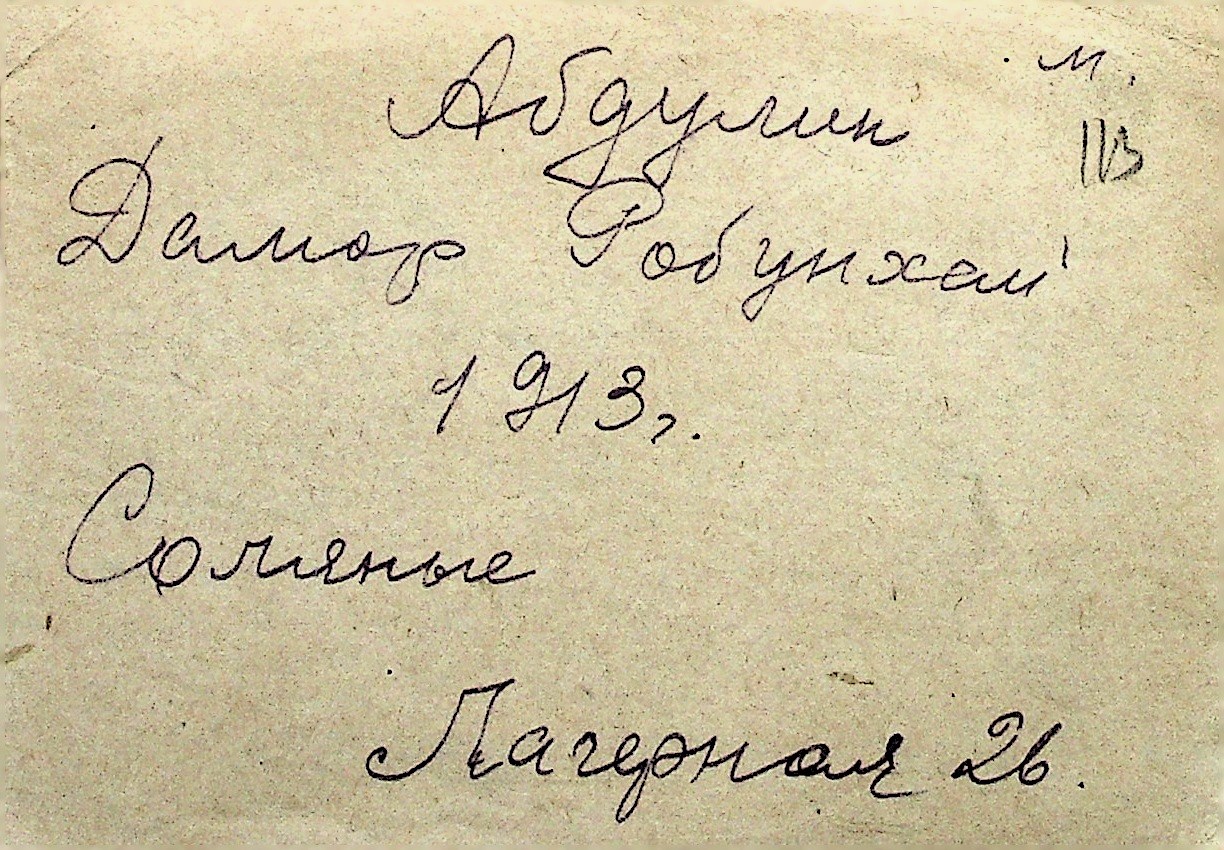 Абдулин м.
Дамор Робунхам
1913г.
Соляные
Лагерная 26.